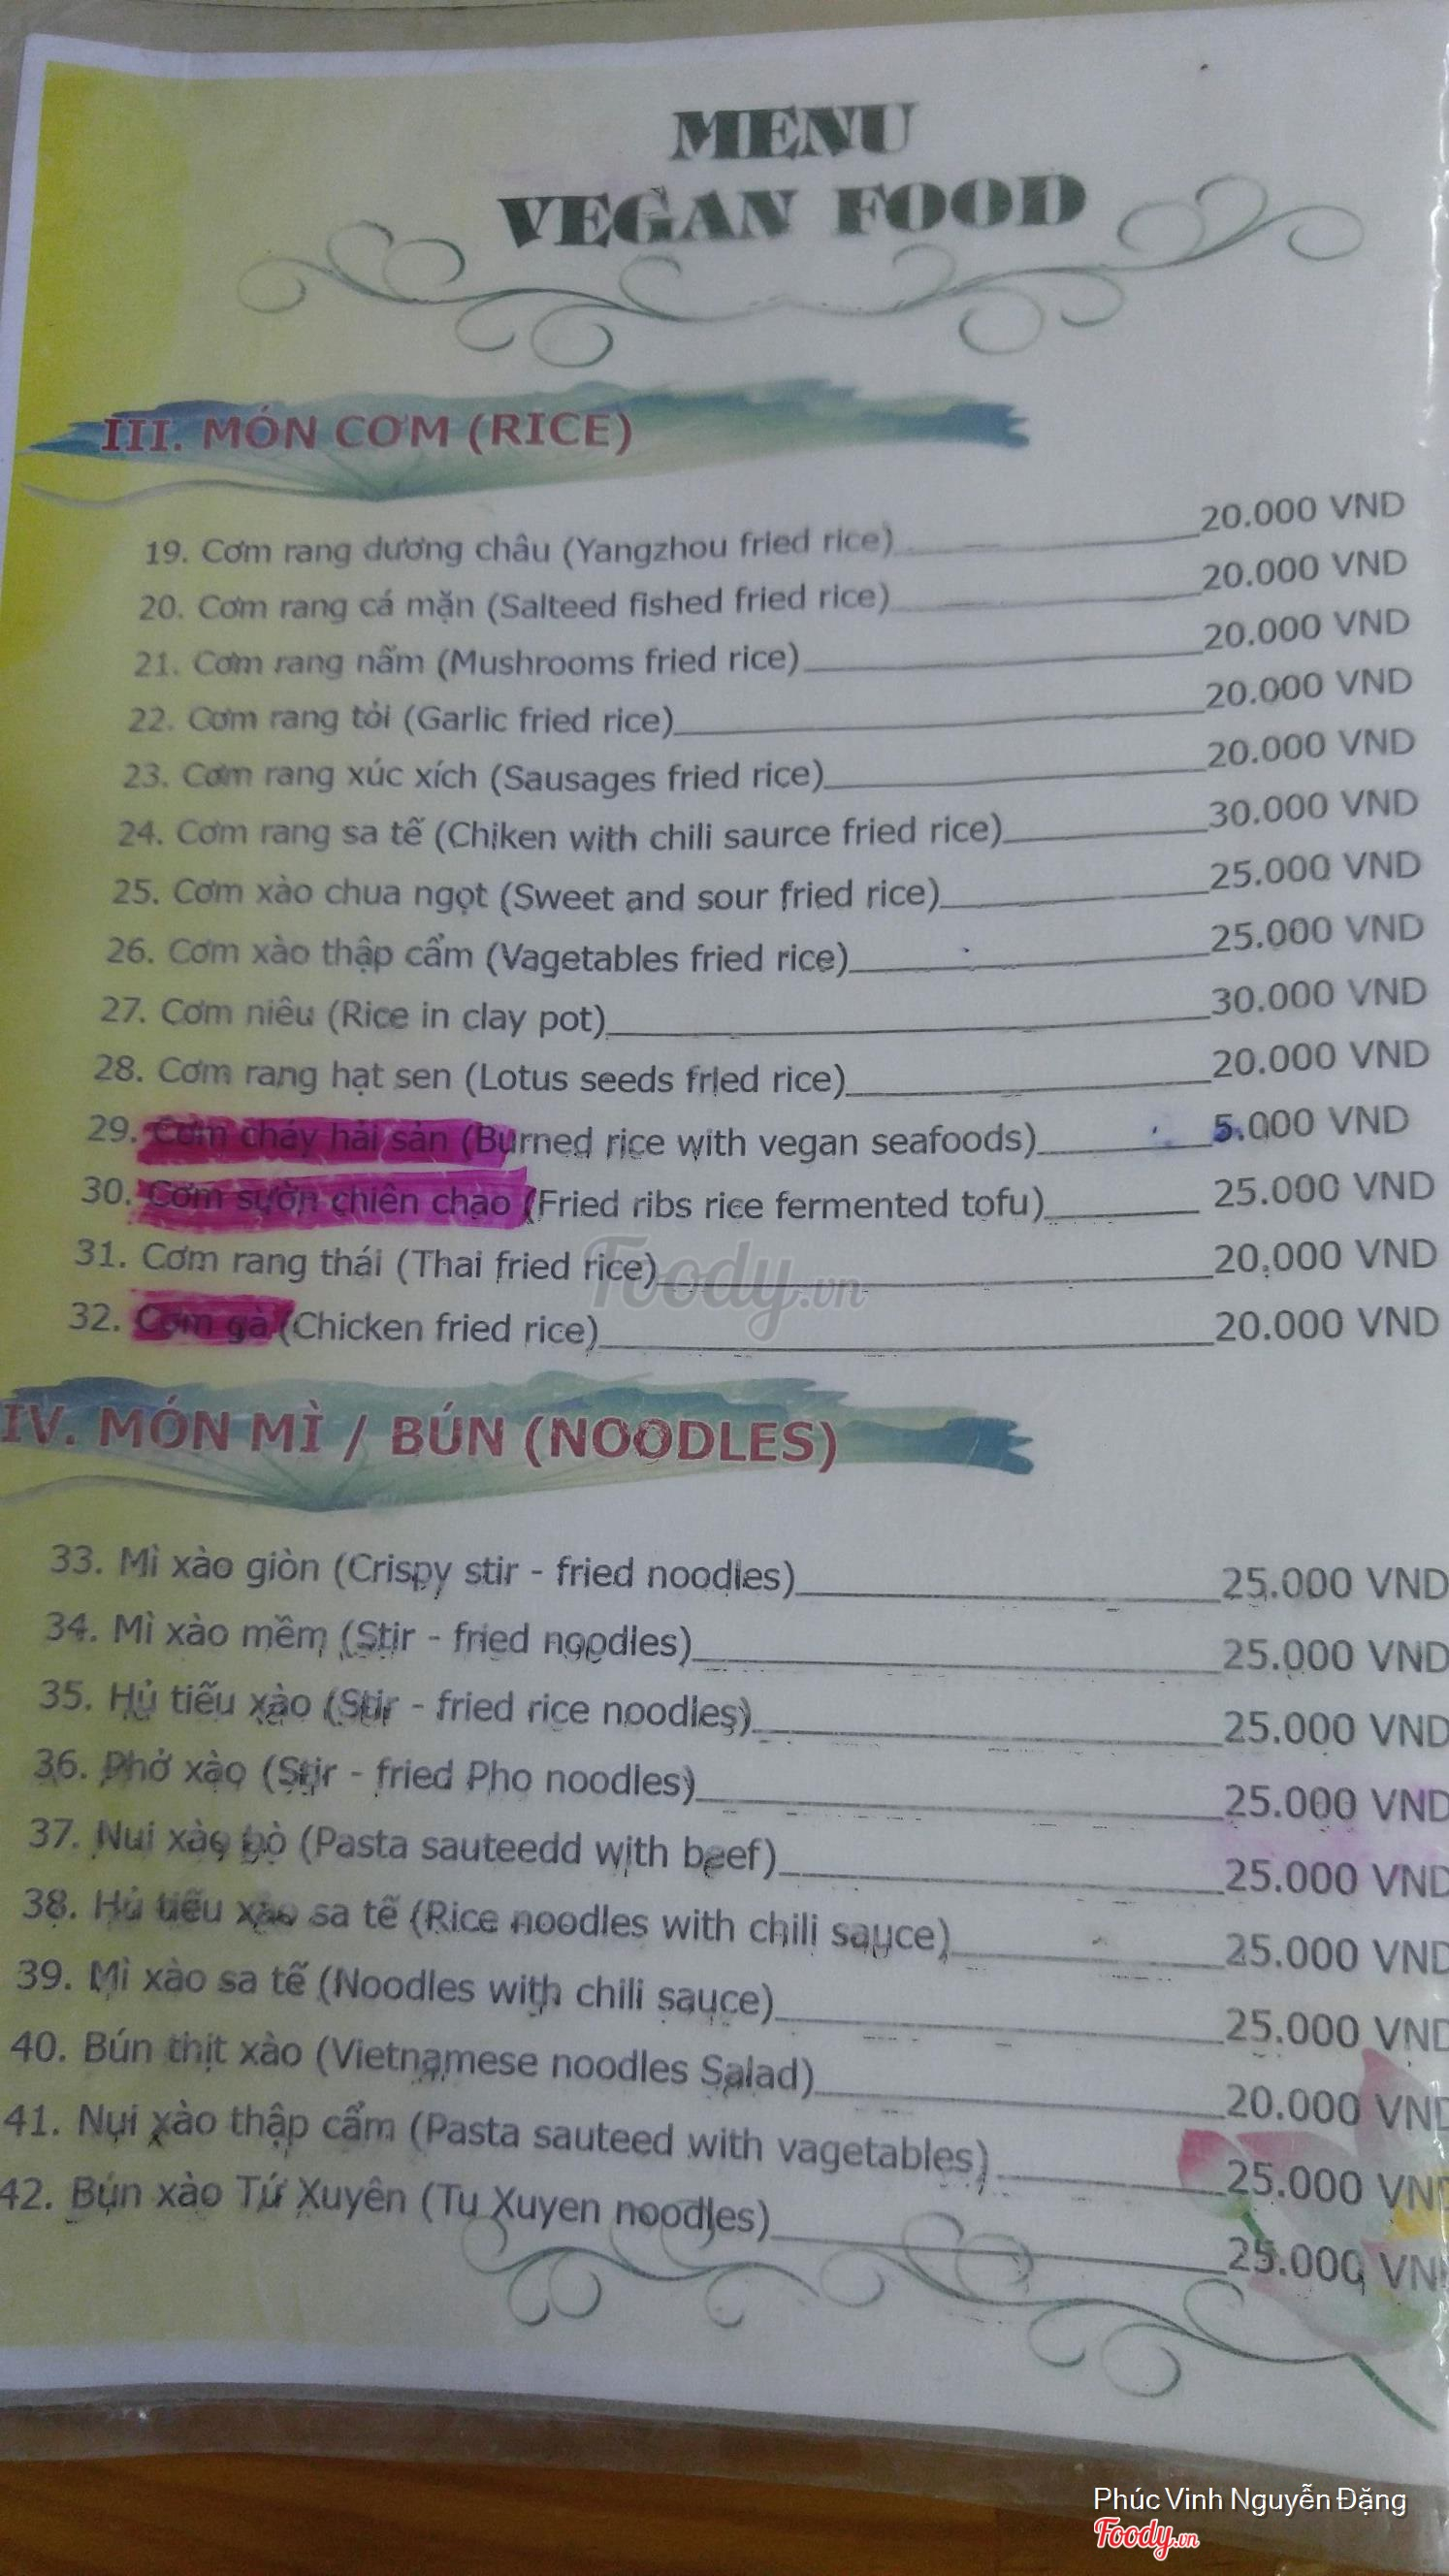 MENU
VEGAN FOOD
III. MÓN CƠM (RICE)
19. Cơm rang dương châu (Yangzhou fried rice) 20.000 VND
20. Cơm rang cá mặn (Salteed fished fried rice) 20.000 VND
21. Cơm rang nấm (Mushrooms fried rice) 20.000 VND
22. Cơm rang tỏi (Garlic fried rice) 20.000 VND
23. Cơm rang xúc xích (Sausages fried rice) 20.000 VND
24. Cơm rang sa tế (Chiken with chili saurce fried rice) 30.000 VND
25. Cơm xào chua ngọt (Sweet and sour fried rice) 25.000 VND
26. Cơm xào thập cẩm (Vagetables fried rice) 25.000 VND
27. Cơm niêu (Rice in clay pot) 30.000 VND
28. Cơm rang hạt sen (Lotus seeds fried rice) 20.000 VND
29. Cơm cháy hải sản (Burned rice with vegan seafoods) 5.000 VND
30. Cơm sườn chiên chao (Fried ribs rice fermented tofu) 25.000 VND
31. Cơm rang thái (Thai fried rice) 20.000 VND
32. Cơm gà (Chicken fried rice) 20.000 VND
Foody.vn
IV. MÓN MÌ / BÚN (NOODLES)
33. Mì xào giòn (Crispy stir - fried noodles) 25.000 VND
34. Mì xào mềm (Stir - fried noodles) 25.000 VND
35. Hủ tiếu xào (Stir - fried rice noodles) 25.000 VND
36. Phở xào (Stir - fried Pho noodles) 25.000 VND
37. Nui xào bò (Pasta sauteedd with beef) 25.000 VND
38. Hủ tiếu xào sa tế (Rice noodles with chili sauce) 25.000 VND
39. Mì xào sa tế (Noodles with chili sauce) 25.000 VND
40. Bún thịt xào (Vietnamese noodles Salad) 20.000 VND
41. Nui xào thập cẩm (Pasta sauteed with vagetables) 25.000 VND
42. Bún xào Tứ Xuyên (Tu Xuyen noodles) 25.000 VN
Phúc Vinh Nguyễn Đặng
Foody.vn